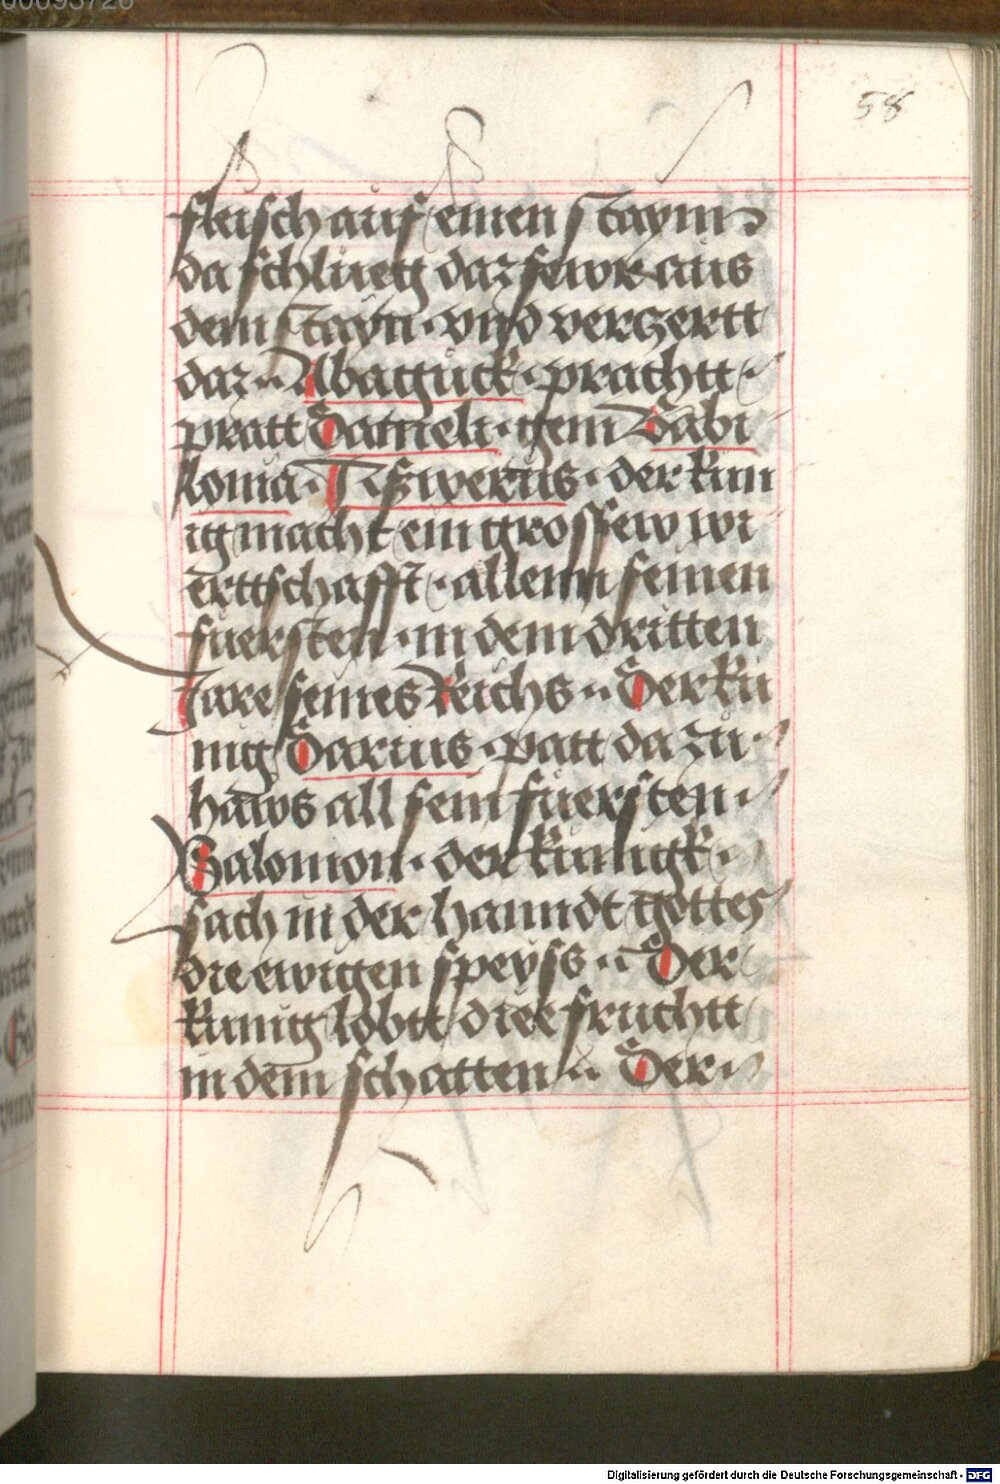 00093726
58
fleisch auf einen staynn
da schlueg daz fewr aus
dem stayn · vnd verczertt
daz ·· Abaguck · prachtt ·
pratt Danieli · gem Babi
lonia · Aswerus · der kun
ig macht ein grossew wi
erttschafft · allenn seinen
fuersten · in dem dritten
Jare seines Reichs ·· Der kü
nig Darius · patt da zu ·
haws all sein fuersten ·
Salomon · der kunigk ·
sach in der hanndt gottes
die ewigen speyss ·· Der
kunig lobtt dise fruchtt
in dem schatten ·· Der
Digitalisierung gefördert durch die Deutsche Forschungsgemeinschaft - DFG